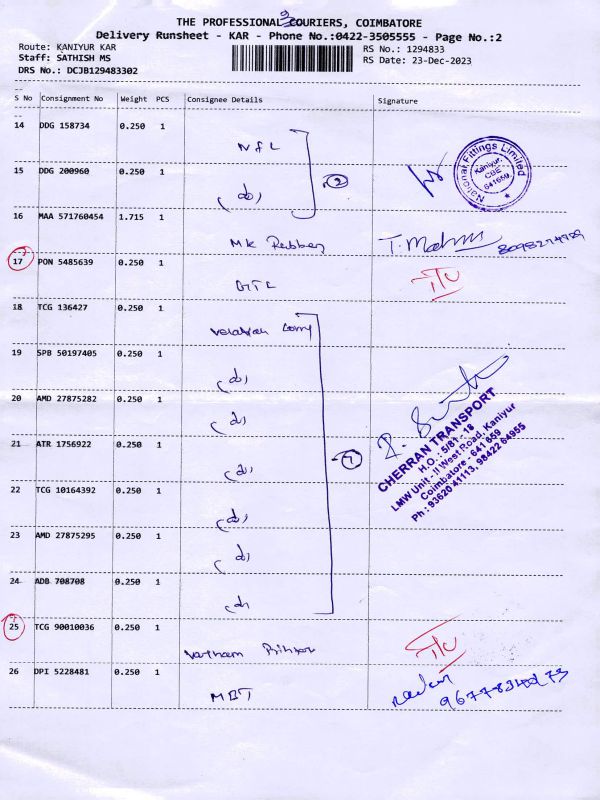 THE PROFESSIONAL COURIERS, COIMBATORE
Delivery Runsheet - KAR - Phone No.:0422-3505555 - Page No.:2
Route: KANIYUR KAR
RS No.: 1294833
Staff: SATHISH MS
RS Date: 23-Dec-2023
DRS No.: DCJB129483302
S No Consignment No Weight PCS Consignee Details Signature
14 DDG 158734 0.250 1
NFL
National Fittings Limited
Kaniyur,
CBE
641659
15 DDG 200960 0.250 1
(do)
2
16 MAA 571760454 1.715 1
MK Rubber
17 PON 5485639 0.250 1
18 TCG 136427 0.250 1
19 SPB 50197405 0.250 1
(do)
20 AMD 27875282 0.250 1
(do)
21 ATR 1756922 0.250 1
(do)
7
CHERRAN TRANSPORT
H.O. : 5/81 - 18
LMW Unit - II West Road, Kaniyur
Coimbatore - 641 659
Ph : 93620 41113, 98422 64955
22 TCG 10164392 0.250 1
(do)
23 AMD 27875295 0.250 1
(do)
24 ADB 708708 0.250 1
(do)
25 TCG 90010036 0.250 1
26 DPI 5228481 0.250 1
MBT